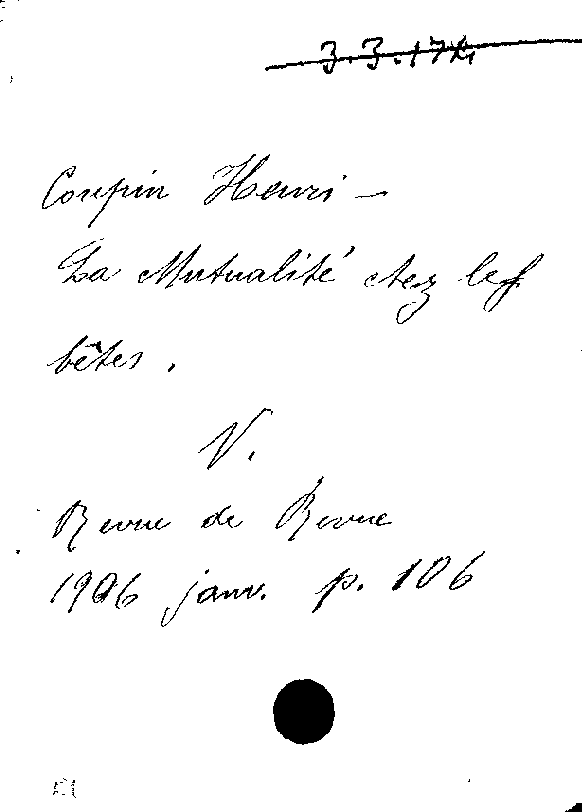 Coupin Henri –
La Mutualité chez les
bêtes.
V.
Revue de Revue
1906 janv. p. 106